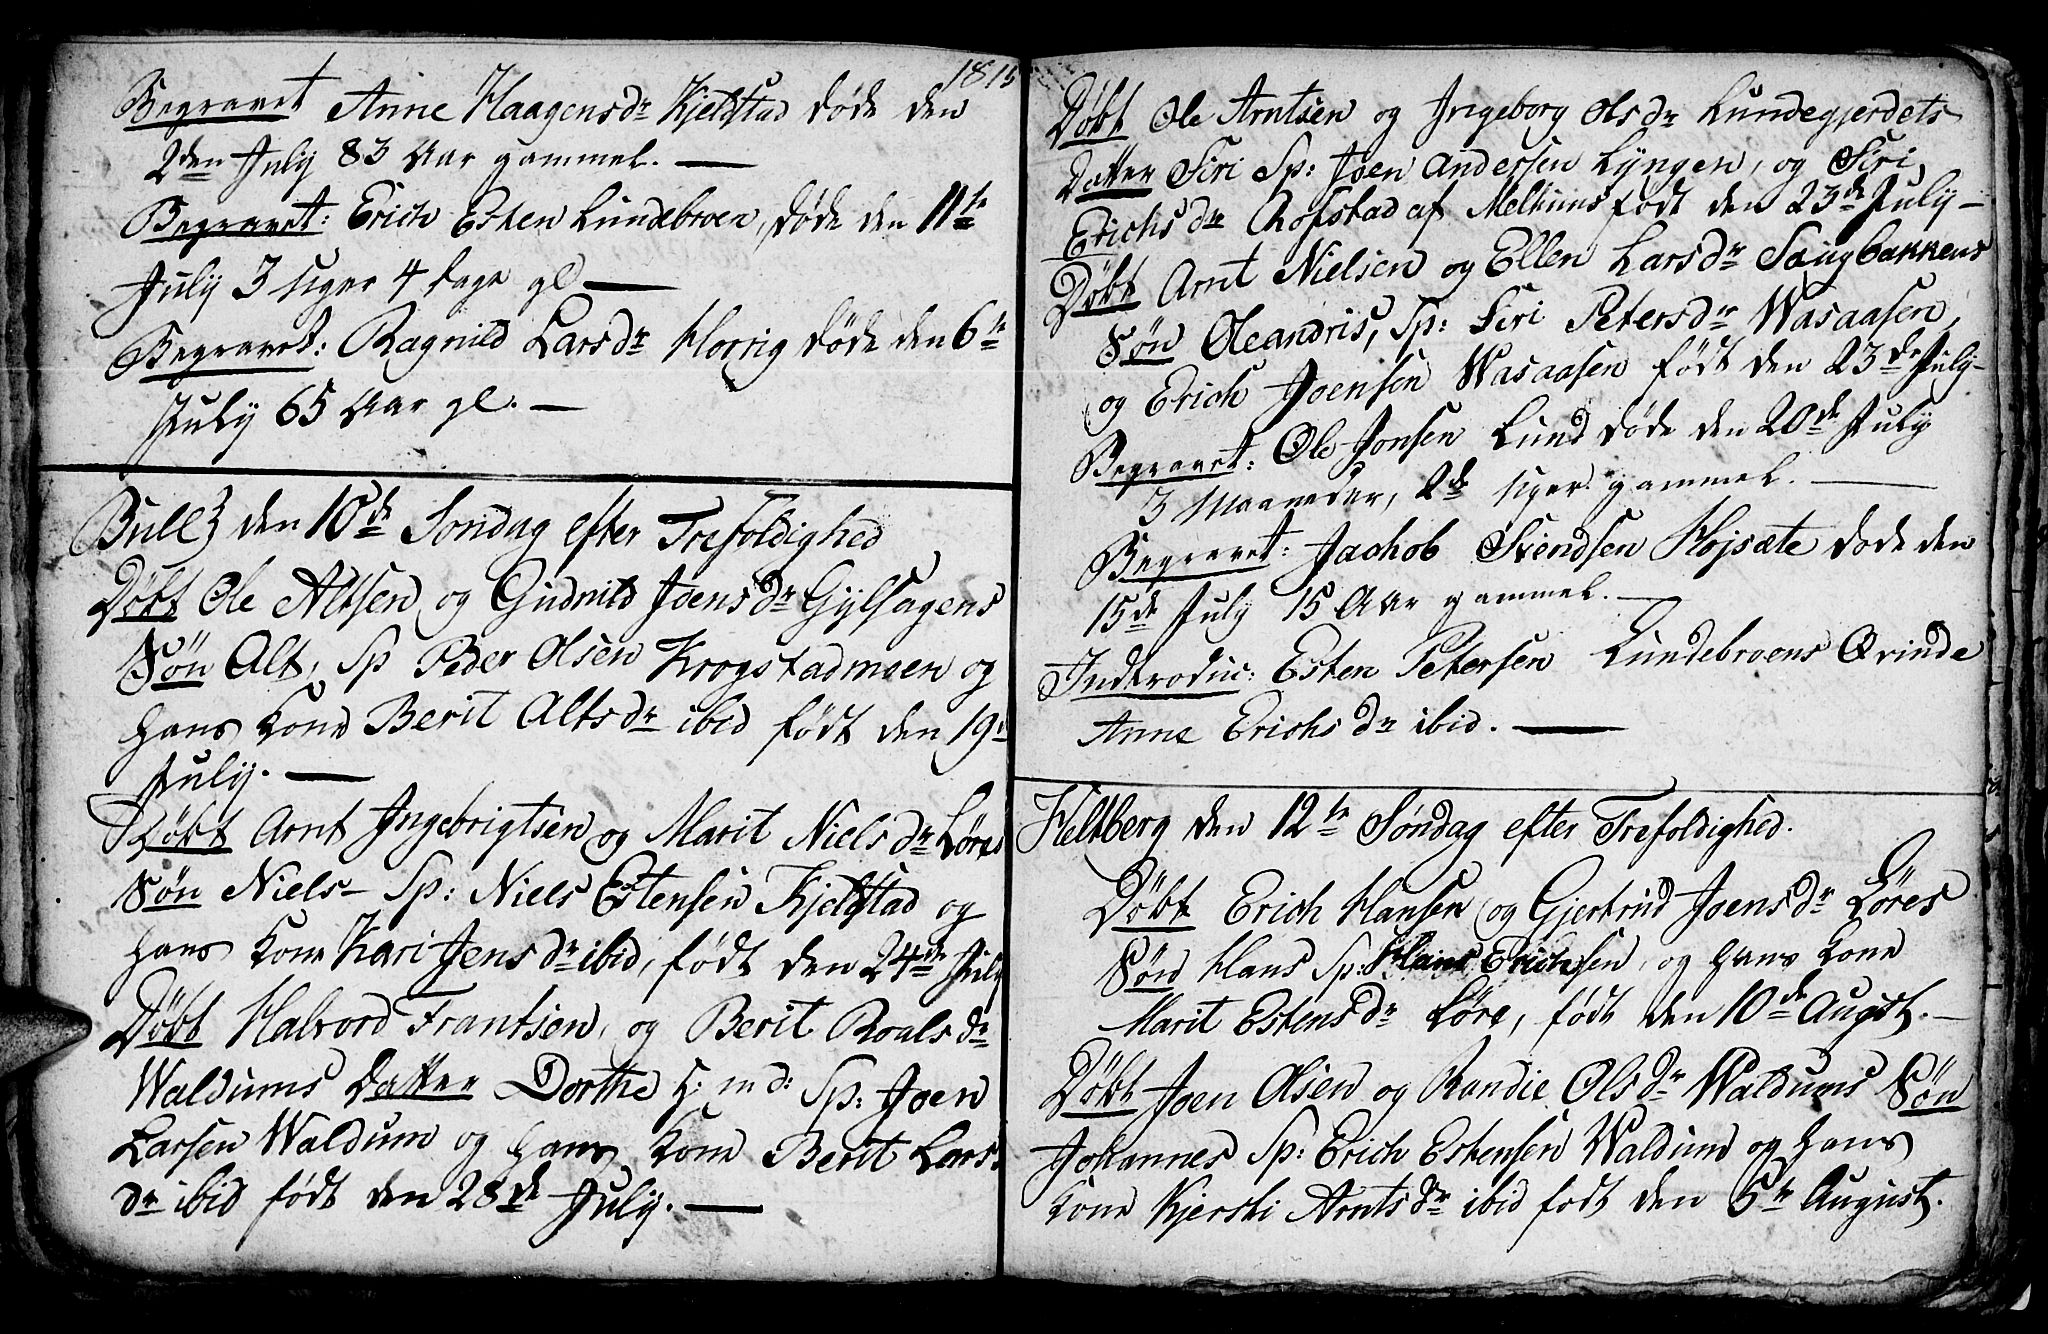 1815
Begravet Anne Haagensdr Kjelstad døde den
2den July 83 Aar gammel. —
Begravet: Erich Esten Lundebroen, døde den 11te
July 3 uger 4 dage gl —
Begravet: Ragnild Larsdr Horrig døde den 6te
July 65 Aar gl. —
den 10de Søndag efter Trefoldighed
Døbt Ole Altsen og Gudnild Joensdr Gylhagens
Søn Alt, Sp Peder Olsen Krogstadmoen og
hans Kone Berit Altsdr ibid født den 19d
July. —
Døbt Arnt Ingebrigtsen og Marit Nielsdr Løres
Søn Niels – Sp: Niels Estensen Kjelstad og
hans Kone Kari Jensdr ibid, født den 24de July
Døbt Halvord Frantsen, og Berit Roalsdr
Waldums Datter Dorthe H: m d: Sp: Joen
Larsen Waldum og hans Kone Berit Lars
dr ibid født den 28de July. —
Døbt Ole Arntsen og Ingeborg Olsdr Lundegjerdets
Datter Siri Sp: Joen Andersen Lyngen, og Siri
Erichsdr Rofstad af Melhuus født den 23de July —
Døbt Arnt Nielsen og Ellen Larsdr Saugbakkens
Søn Oleandris, Sp: Siri Petersdr Wasaasen,
og Erich Joensen Wasaasen født den 23de July —
Begravet: Ole Jonsen Lund døde den 20de July
3 Maaneder, 2de uger gammel. —
Begravet: Jachob Svendsen Højsæte døde den
15de July 15 Aar gammel. —
Indtroduc: Esten Petersen Lundebroens Qvinde
Anne Erichsdr ibid. —
Heltberg den 12te Søndag efter Trefoldighed.
Døbt Erich Hansen og Gjertrud Joensdr Løres
Søn Hans Sp: Hans Erichsen, og hans Kone
Marit Estensdr Løre, født den 10de Augst. —
Døbt Joen Olsen og Randie Olsdr Waldums Søn
Johannes Sp: Erich Estensen Waldum og hans
Kone Kjersti Arntsdr ibid født den 5te August.